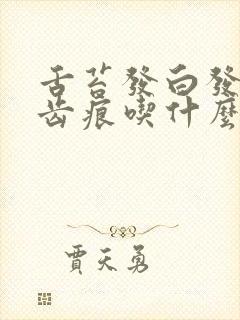 舌苔發白發
齿痕喫什麼
賈天勇